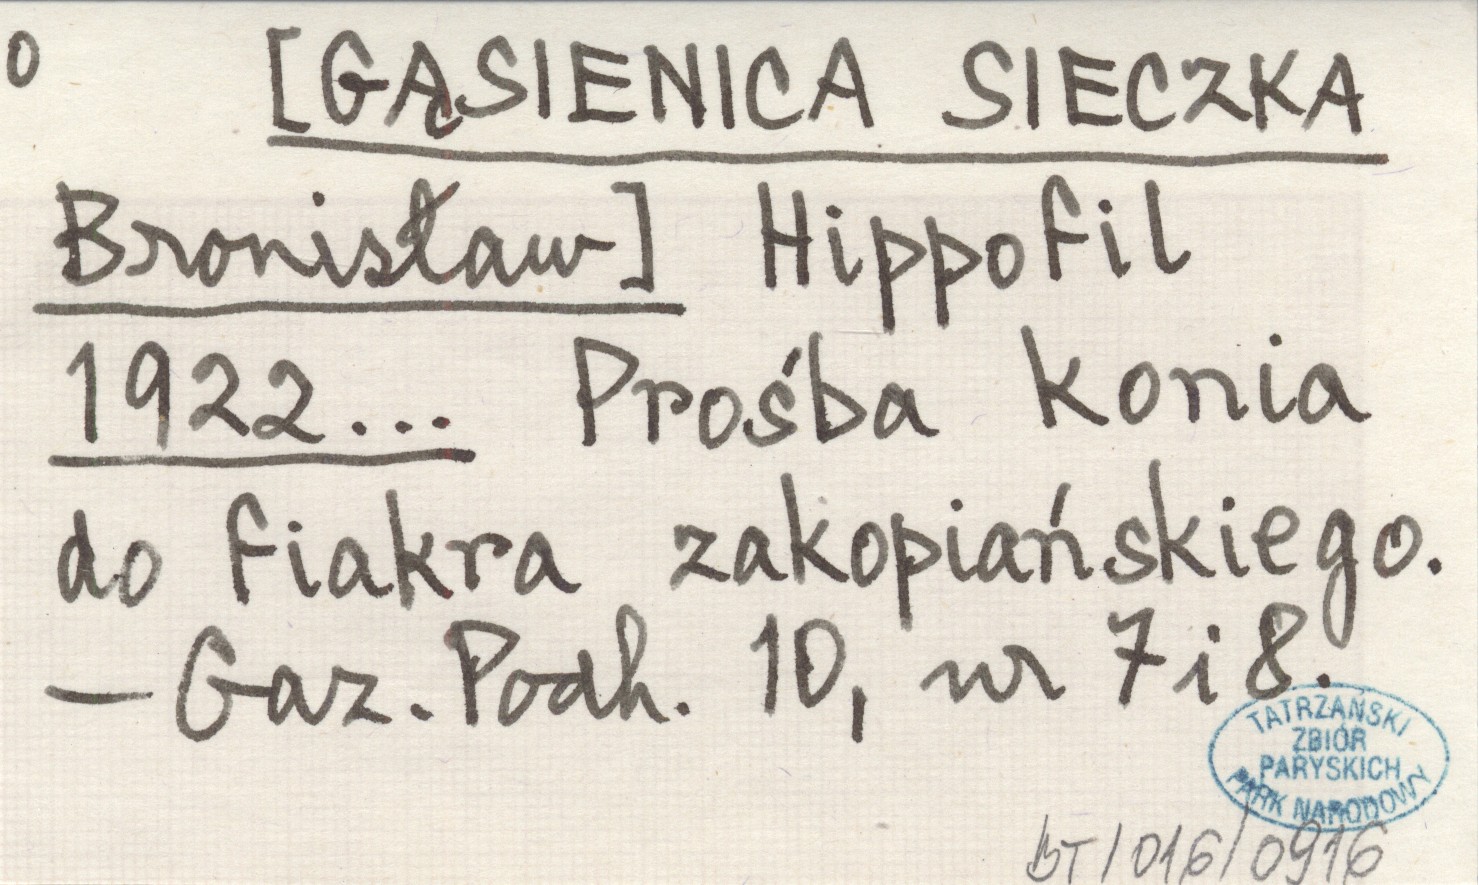 o [GĄSIENICA SIECZKA
Bronisław] Hippofil
1922... Prośba konia
do fiakra zakopiańskiego.
— Gaz. Podh. 10, nr 7 i 8.
TATRZAŃSKI
ZBIÓR
PARYSKICH
PARK NARODOWY
BT/016/0916